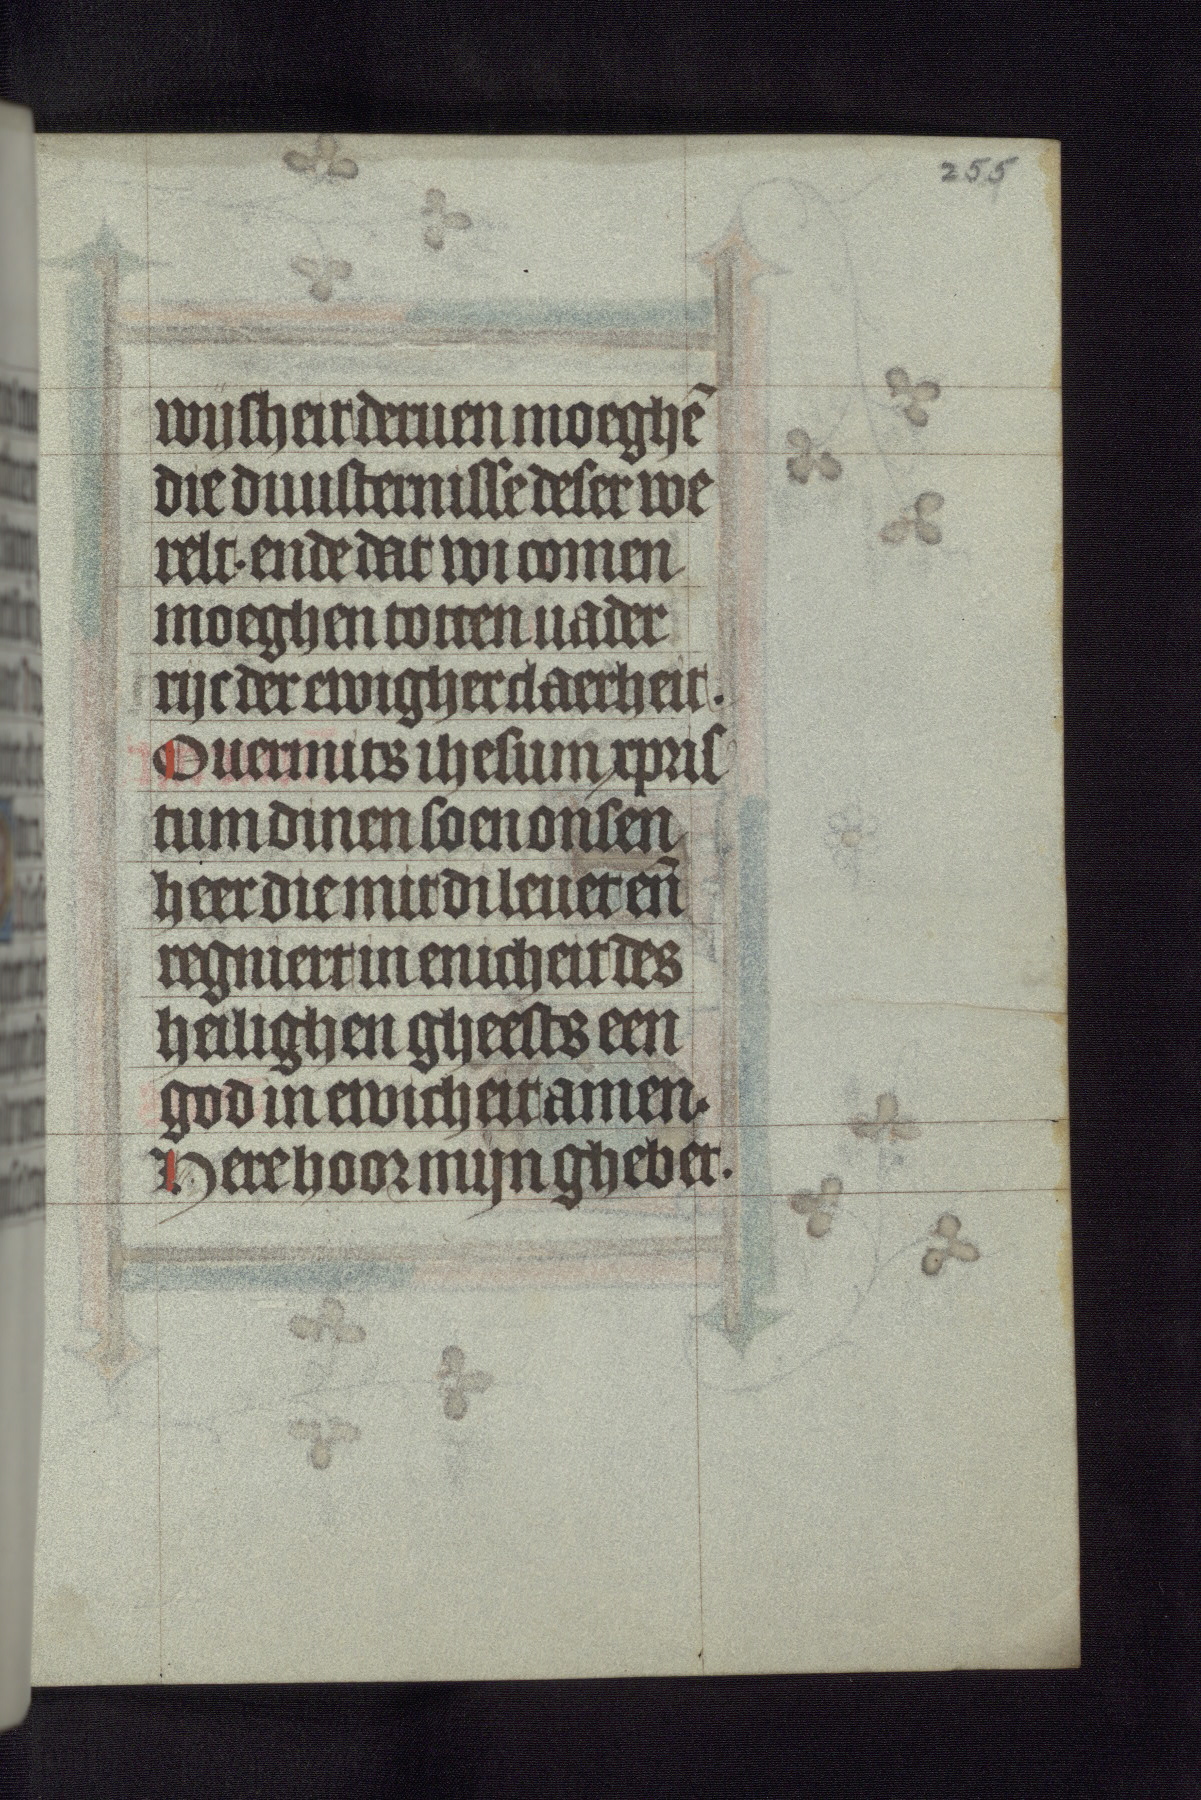 255
wijsheit deruen moeghē
die duusternisse deser we
relt. ende dat wi comen
moeghen totten uader
rijc der ewigher claerheit.
Ouermits ihesum xpris
tum dinen soen onsen
heer die mit di leuet en̄
regniert in enicheit des
heilighen gheests een
god in ewicheit amen.
Here hoor mijn ghebet.